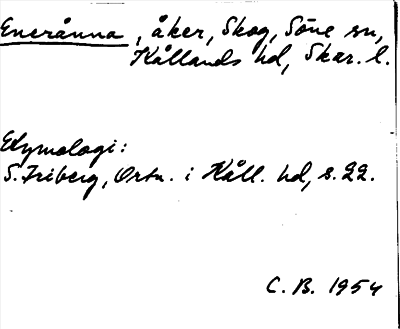 Eneränna, åker, Skog, Söne sn,
Kållands hd, Skar. l.
Etymologi:
S. Friberg, Ortn. i Kåll. hd, s. 22.
C. B. 1954